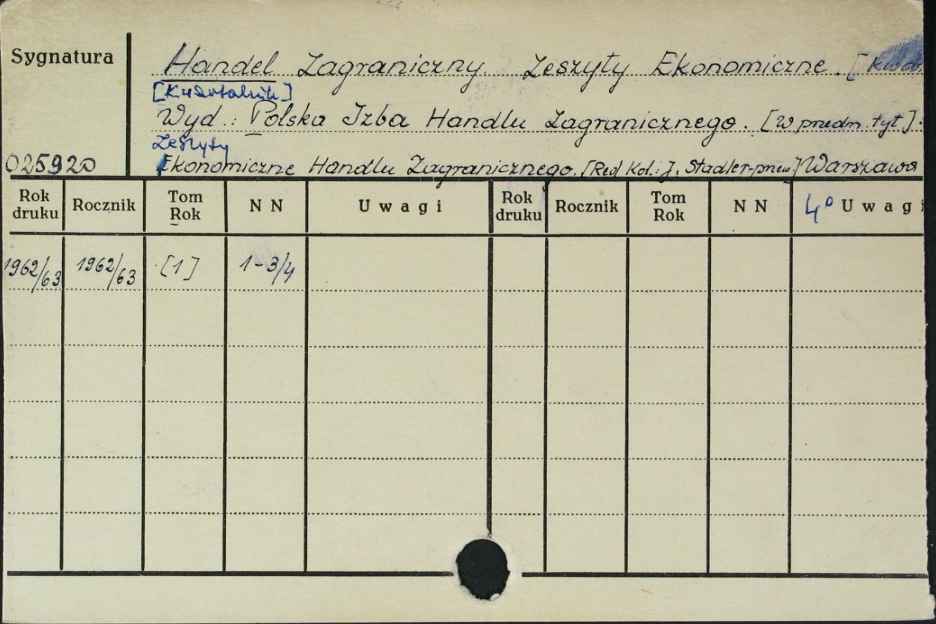 Sygnatura
Handel Zagraniczny. Zeszyty Ekonomiczne. [
[Kwartalnik]
Wyd.: Polska Izba Handlu Zagranicznego. [W przedm. tyt].:
Zeszyty
025920
Ekonomiczne Handlu Zagranicznego. [Red. Kol.: J. Stadler-przew.] Warszawa
Rok druku Rocznik Tom Rok N N Uwagi Rok druku Rocznik Tom Rok N N 4° Uwagi
1962/63 1962/63 [1] 1-3/4